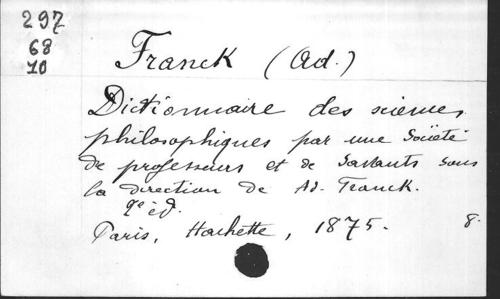 297
68
10
Franck (Ad.)
Dictionnaire des sciences
philosophiques par une Société
de professeurs et de Savants sous
la direction de Ad. Franck.
2e éd.
Paris, Hachette, 1875. 8.